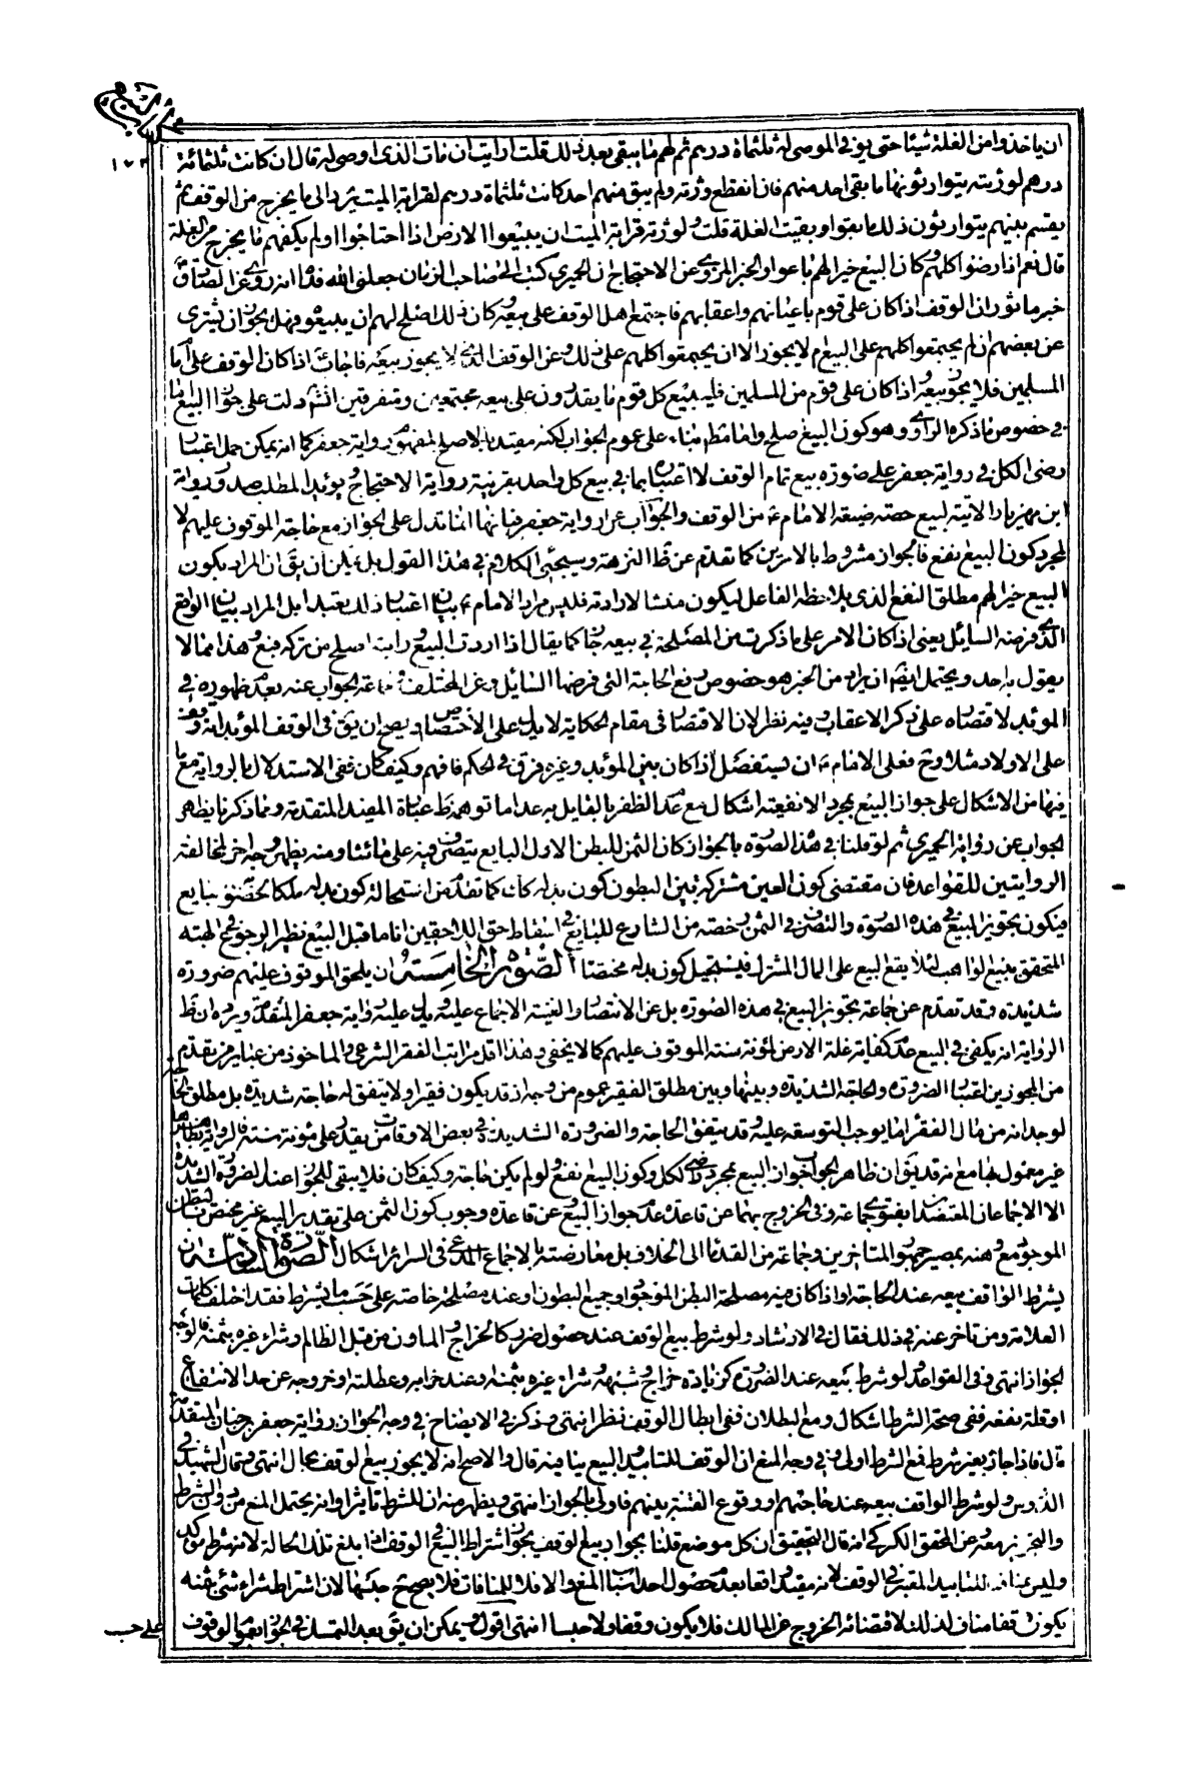 كتاب البيع
١٧٣
ان ياخذوا من الغلة شيئا حتى يوفى الموصى له ثلثمائة درهم ثم لهم ما يبقى بعد ذلك قلت ارايت ان مات الذى اوصى له قال ان كانت ثلثمائة
درهم لورثته يتوارثونها ما بقى احد منهم فان انقطع ورثته ولم يبق منهم احد كانت ثلثمائة درهم لقرابة الميت يرد الى ما يخرج من الوقف ثم
يقسم بينهم يتوارثون ذلك ما بقوا وبقيت الغلة قلت ولورثة قرابة الميت ان يبيعوا الارض اذا احتاجوا ولم يكفهم ما يخرج من الغلة
قال نعم اذا رضوا كلهم وكان البيع خيرا لهم باعوا والخبر المروى عن الاحتجاج ان الحميرى كتب الى صاحب الزمان جعلنى الله فداه انه روى عن الصادق
خبر ماثور ان الوقف اذا كان على قوم باعيانهم واعقابهم فاجتمع اهل الوقف على بيعه وكان ذلك اصلح لهم ان يبيعوه فهل يجوز ان يشترى
عن بعضهم ان لم يجتمعوا كلهم على البيع ام لا يجوز الا ان يجتمعوا كلهم على ذلك وعن الوقف الذى لا يجوز بيعه فاجاب اذا كان الوقف على امام
المسلمين فلا يجوز بيعه واذا كان على قوم من المسلمين فليبيع كل قوم ما يقدرون على بيعه مجتمعين ومتفرقين انشاء دلت على جواز البيع اما
فى خصوص ما ذكره الراوى وهو كون البيع اصلح واما مطلقا بناء على عموم الجواب لكنه مقيد بالاصلح لمفهوم رواية جعفر كما انه يمكن حمل اعتبار
رضى الكل فى رواية جعفر على صورة بيع تمام الوقف لا اعتباره بما فى بيع كل واحد بقرينة رواية الاحتجاج ويؤيد المطلب صدر رواية
ابن مهزيار الاتية لبيع حصة ضيعة الامام ع من الوقف والجواب عن رواية جعفر فبانها انما تدل على الجواز مع حاجة الموقوف عليهم لا
لمجرد كون البيع انفع فالجواز مشروط بالامرين كما تقدم عن ظاهر النزهة وسيجئ الكلام فى هذا القول بل يمكن ان يق ان المراد بكون
البيع خيرا لهم مطلق النفع الذى يلاحظه الفاعل ليكون منشا لارادته فليس مراد الامام ع بيان اعتبار ذلك تعبدا بل المراد بيان الواقع
الذى فرضه السايل يعنى اذا كان الامر على ما ذكرت من المصلحة فى بيعه جاز كما يقال اذا اردت البيع ورايته اصلح من تركه فبع وهذا مما لا
يقول به احد ويحتمل ايضا ان يراد من الخبر هو خصوص رفع الحاجة التى فرضها السايل وعن المختلف وجماعة الجواب عنه بعدم ظهوره فى
المؤبد لاقتصاره على ذكر الاعقاب وفيه نظر لان الاقتصار فى مقام الحكاية لا يدل على الاختصاص اذ يصح ان يق فى الوقف المؤبد انه وقف
على الاولاد مثلا وح فعلى الامام ع ان يستفصل اذا كان بين المؤبد وغيره فرق فى الحكم فافهم وكيف كان ففى الاستدلال بالرواية مع ما
فيها من الاشكال على جواز البيع بمجرد الانفعية اشكال مع عدم الظفر بالقايل به عدا ما توهمه ظ عبارة المفيد المتقدمة ومما ذكرنا يظهر
الجواب عن رواية الحميرى ثم لو قلنا فى هذا الصورة بالجواز كان الثمن للبطن الاول البايع يتصرف فيه على ما شاء ومنه يظهر وجه اخر لمخالفة
الروايتين للقواعد فان مقتضى كون العين مشتركة بين البطون كون بدله كك كما تقدم من استحالة كون بدله ملكا لخصوص البايع
فيكون تجويز البيع فى هذه الصورة والتصرف فى الثمن رخصة من الشارع للبايع فى اسقاط حق اللاحقين انا ما قبل البيع نظير الرجوع فى الهبة
المتحقق ببيع الواهب لئلا يقع البيع على المال المشترك فيستحيل كون بدله مختصا الصورة الخامسة ان يلحق الموقوف عليهم ضرورة
شديدة وقد تقدم عن جماعة تجويز البيع فى هذه الصورة بل عن الانتصار والغنية الاجماع عليه ويدل عليه رواية جعفر المتقدمة ويرده ان ظ
الرواية انه يكفى فى البيع عدم كفاية غلة الارض لمؤنة سنة الموقوف عليهم كما لا يخفى وهذا اقل مراتب الفقر الشرعى والماخوذ من عباير من تقدم
من المجوزين اعتبار الضرورة والحاجة الشديدة وبينها وبين مطلق الفقر عموم من وجه اذ قد يكون فقيرا ولا يتفق له حاجة شديدة بل مطلق الحاجة
لوجدانه من مال الفقراء ما يوجب التوسعة عليه وقد يتفق الحاجة والضرورة الشديدة فى بعض الاوقات لمن يقدر على مؤنة سنته فالرواية بظاهرها
غير معمول بها مع انه قد يق ان ظاهر الجواب جواز البيع بمجرد رضى الكل وكون البيع انفع ولو لم يكن حاجة وكيف كان فلا يبقى للجواز عند الضرورة الشديدة
الا الاجماعان المعتضدان بفتوى جماعة وفى الخروج بهما عن قاعدة عدم جواز البيع وعن قاعدة وجوب كون الثمن على تقدير البيع غير مختص بالبطن
الموجود مع وهنه بمصير جمهور المتاخرين وجماعة من القدماء الى الخلاف بل معارضته بالاجماع المدعى فى السرائر اشكال الصورة السادسة ان
يشترط الواقف بيعه عند الحاجة او اذا كان فيه مصلحة البطن الموجود او جميع البطون او عند مصلحة خاصة على حسب ما يشترط فقد اختلف كلمات
العلامة ومن تاخر عنه فى ذلك فقال فى الارشاد ولو شرط بيع الوقف عند حصول ضرر كالخراج والمؤن من قبل الظالم وشراء غيره بثمنه فالوجه
الجواز انتهى وفى القواعد لو شرط بيعه عند الضرورة كزيادة خراج وشبهه وشراء غيره بثمنه وعند خرابه وعطلته او خروجه عن حد الانتفاع
او قلة نفعه ففى صحة الشرط اشكال ومع البطلان ففى ابطال الوقف نظر انتهى وذكر فى الايضاح فى وجه الجواز رواية جعفر بن حيان المتقدمة
قال فاذا جاز بغير شرط فمع الشرط اولى وفى وجه المنع ان الوقف للتابيد والبيع ينافيه قال والاصح انه لا يجوز بيع الوقف بحال انتهى وقال الشهيد فى
الدروس ولو شرط الواقف بيعه عند حاجتهم او وقوع الفتنة بينهم فاولى بالجواز انتهى ويظهر منه ان للشرط تاثيرا وانه يحتمل المنع من دون الشرط
والتجويز معه وعن المحقق الكركى انه قال التحقيق ان كل موضع قلنا بجواز بيع الوقف يجوز اشتراط البيع فى الوقف اذا بلغ تلك الحالة لانه شرط مؤكد
وليس بمناف للتابيد المعتبر فى الوقف لانه مقيد واقعا بعدم حصول احد اسباب المنع والا فلا للمنافات فلا يصح ح حبسا لان اشتراط شراء شئ بثمنه
يكون وقفا مناف لذلك لاقتضائه الخروج عن المالك فلا يكون وقفا ولا حبسا انتهى اقول ويمكن ان يق بعد التمسك فى الجواز بعموم الوقوف
على حسب